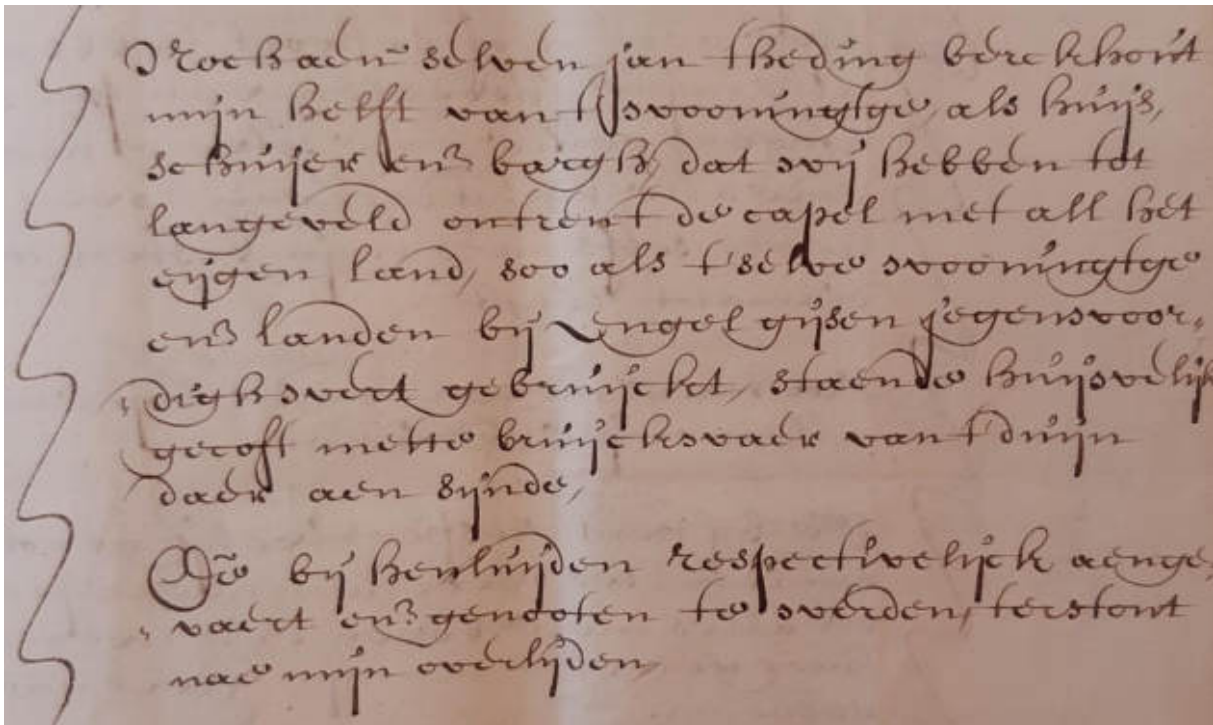 Noch aen selven Jan Theding Berckhout
mijn helft van t wooningtge, als huijs,
schuijer ende bargh, dat wij hebben tot
langeveld ontrent de capel met all het
eijgen land, soo als t selve wooningtge
ende landen bij Engel gijsen jegenswoor-
digh wert gebruijckt, staende huijs
gecoft mette bruijckwaer van t duijn
daer aen sijnde,
Om bij henluijden respectivelijck aenge-
vaert ende genooten te werden, terstont
nae mijn overlijden,